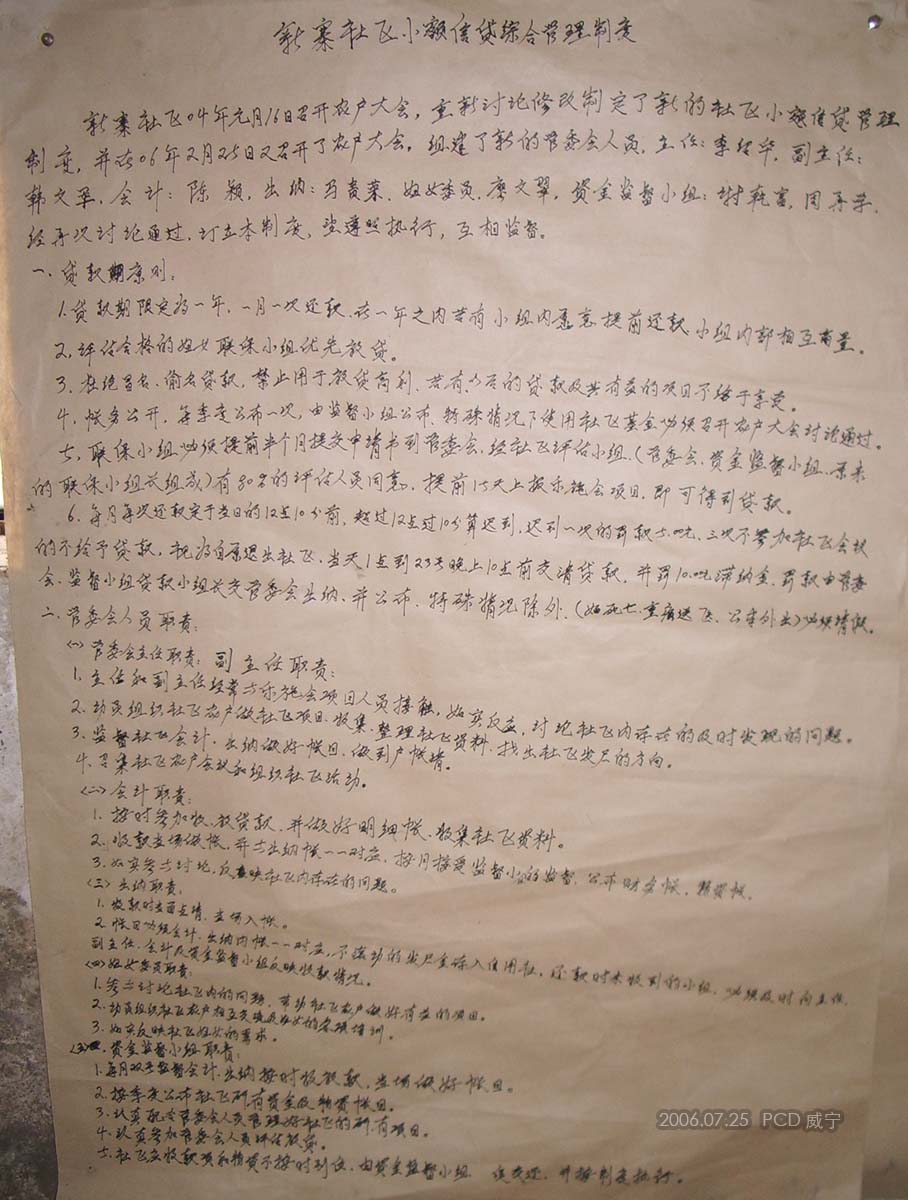 新寨社飞小额信贷综合管理制度
新寨社飞04年元月16日召开农户大会，重新讨论修改制定了新的社飞小额信贷管理
制度，并在06年2月25日又召开了农户大会。组建了新的管委会人员，主任：李绍华，副主任：
韩文军，会计：陈颖，出纳：马贵菜，妇女委员，廖文翠，资金监督小组：谢乾富，周再学，
经再次讨论通过，订立本制度，望遵照执行，互相监督。
一、贷款期原则：
1.贷款期限定为一年，一月一次还款，在一年之内若有小组内愿意提前还款，小组内部相互商量。
2，评估合格的妇女联保小组优先放贷。
3、杜绝冒名、偷名贷款，禁止用于放贷高利，若有的贷款及共有益的项目不给于享受。
4，帐务公开，每季度公布一次，由监督小组公布，特殊情况下使用社飞基金必须召开农户大会讨论通过。
5，联保小组必须提前半个月提交申请书到管委会、经社飞评估小组、（管委会、资金监督小组、原来
的联保小组长组成）有80%的评估人员同意，提前15天上报乐施会项目，即可得到贷款。
6、每月每次还款定于当日的12点10分前，超过12点过10分算迟到，迟到一次的罚款5.00元，三次不参加社飞会议
的不给予贷款，视为自愿退出社飞，当天1点到23号晚上10点前交清贷款，并罚10.00元滞纳金，罚款由管委
会、监督小组贷款小组长交管委会出纳、并公布，特殊情况除外、（如死亡、重病送飞、公事外出）必须请假。
二、管委会人员职责：
㈠管委会主任职责；副主任职责：
1、主任和副主任经常与乐施会项目人员接触，如实反应，讨论社飞内存在的及时发现的问题。
2、动员组织社飞农户做社飞项目、收集、整理社飞资料，找出社飞发展的方向。
3、监督社飞会计、出纳做好帐目、做到户帐清。
4、召集社飞农户会议和组织社飞活动。
㈡会计职责：
1、按时参加收、放贷款、并做好明细帐、收集社飞资料。
2、收款当场做帐，并与出纳帐一一对应，按月接受监督小组的监督，公布财务帐、物资帐。
3、如实参与讨论，反映社飞内存在的问题。
㈢出纳职责：
1、收款时当面点清，当场入帐。
2、帐目必须会计、出纳内帐一一对应，不滚动的发展金存入信用社，还款时未收到的小组，必须及时向主任，
副主任、会计及资金监督小组反映收款情况。
㈣妇女委员职责：
1、参与讨论社飞内的问题，带动社飞农户做好有益的项目。
2、动员组织社飞农户相互交流及妇女的各项培训。
3、如实反映社飞妇女的要求。
㈤资金监督小组职责：
1、每月收款监督会计、出纳按时收放款，当场做好帐目。
2、按季度公布社飞所有资金及物资帐目。
3、认真配合管委会人员管理好社飞的所有项目。
4、认真参加管委会人员评估放贷。
5、社飞应收款项和物资不按时到位，由资金监督小组，并按制度执行。
2006.07.25 PCD 威宁